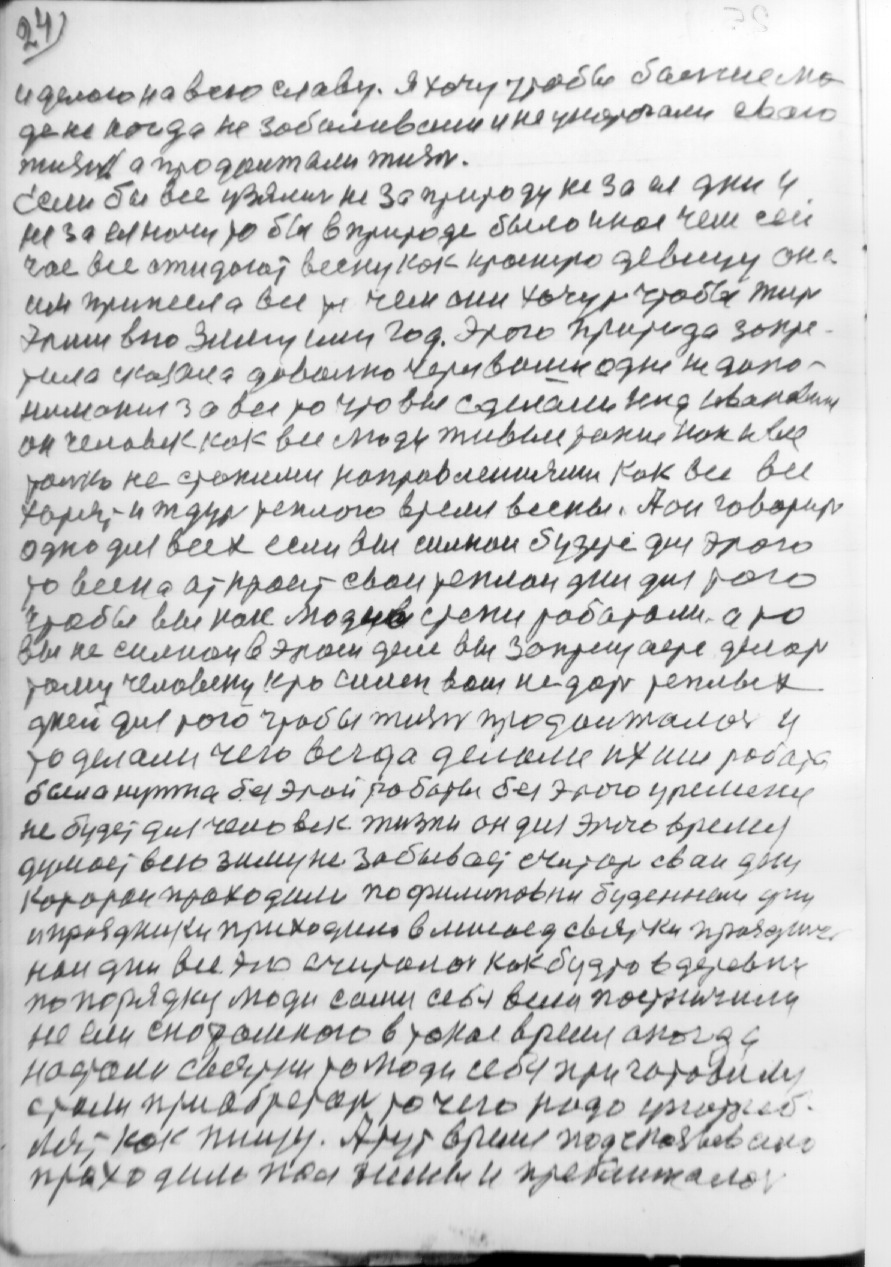 24)
и делаю на всю славу. Я хочу чтобы
де не когда не заболивали и не уморчали своего
жизня а продолжали жизн.
Если бы все взялис не за природу не за ея дни и
не за ея ночи то бы в природе было иное чем сей
час все ожидают весну как красную девицу она
им принесла все то чем они хочут чтобы жит
этим всю зиму или год. Этого природа запре-
тила сказала довольно через ваши одни
за все то что вы сделали
он человек как все люди живые такие как и все
толко не с такими направлениями как все все
хотят и ждут теплого время весны. А он говорит
одно для всех если вы силнаи будете для этого
то весна аткроит сваи теплаи дни для того
чтобы вы как люди в степи работали. а то
вы не силнаи в этом деле вы запрещаете делат
тому человеку кто силен вам не даст теплых
дней для того чтобы жизн продолжалос и
то делали чего всегда делали их им работа
была нужна без этой работы без этого уремени
не будет для человек жизни он для этого время
думает всю зиму не забывает считат сваи дни
каторои праходили по филиповки буденнаи дни
и праздники приходило в мясоед святки празднич
наи дни все это считалос как будто в деревни
по порядку люди сами себя вели постничили
не ели скораммного в такое время а когда
настали святки то люди себя приготовили
стали приабретат то чего надо употреб-
лят как пищу. А тут время подсказывало
праходило пол зимы и преближалос